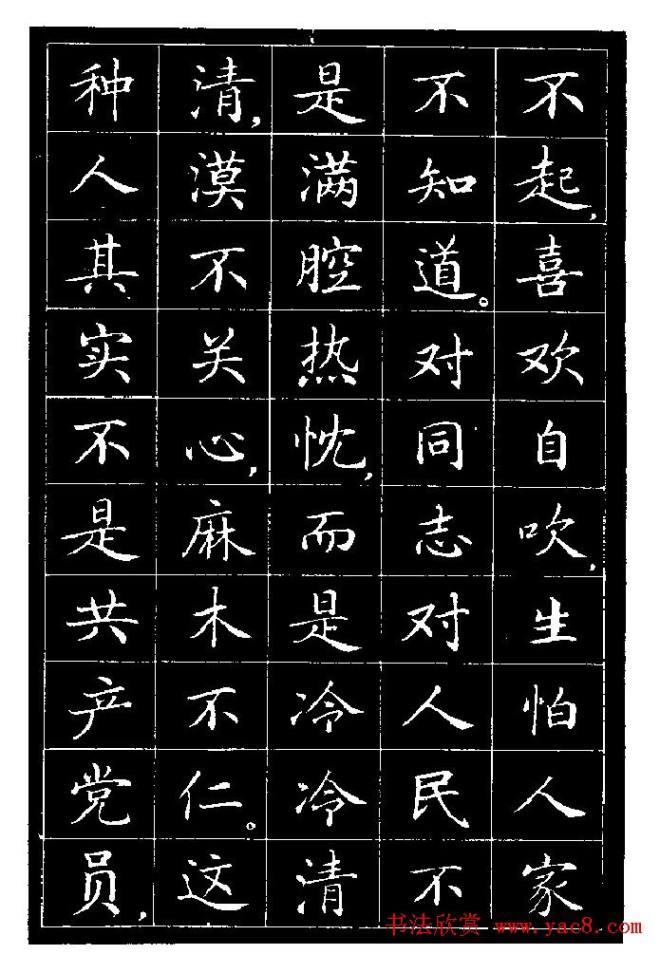 不起,喜欢自吹,生怕人家
不知道。对同志对人民不
是满腔热忱,而是冷冷清
清,漠不关心,麻木不仁。这
种人其实不是共产党员,
书法欣赏 www.yac8.com